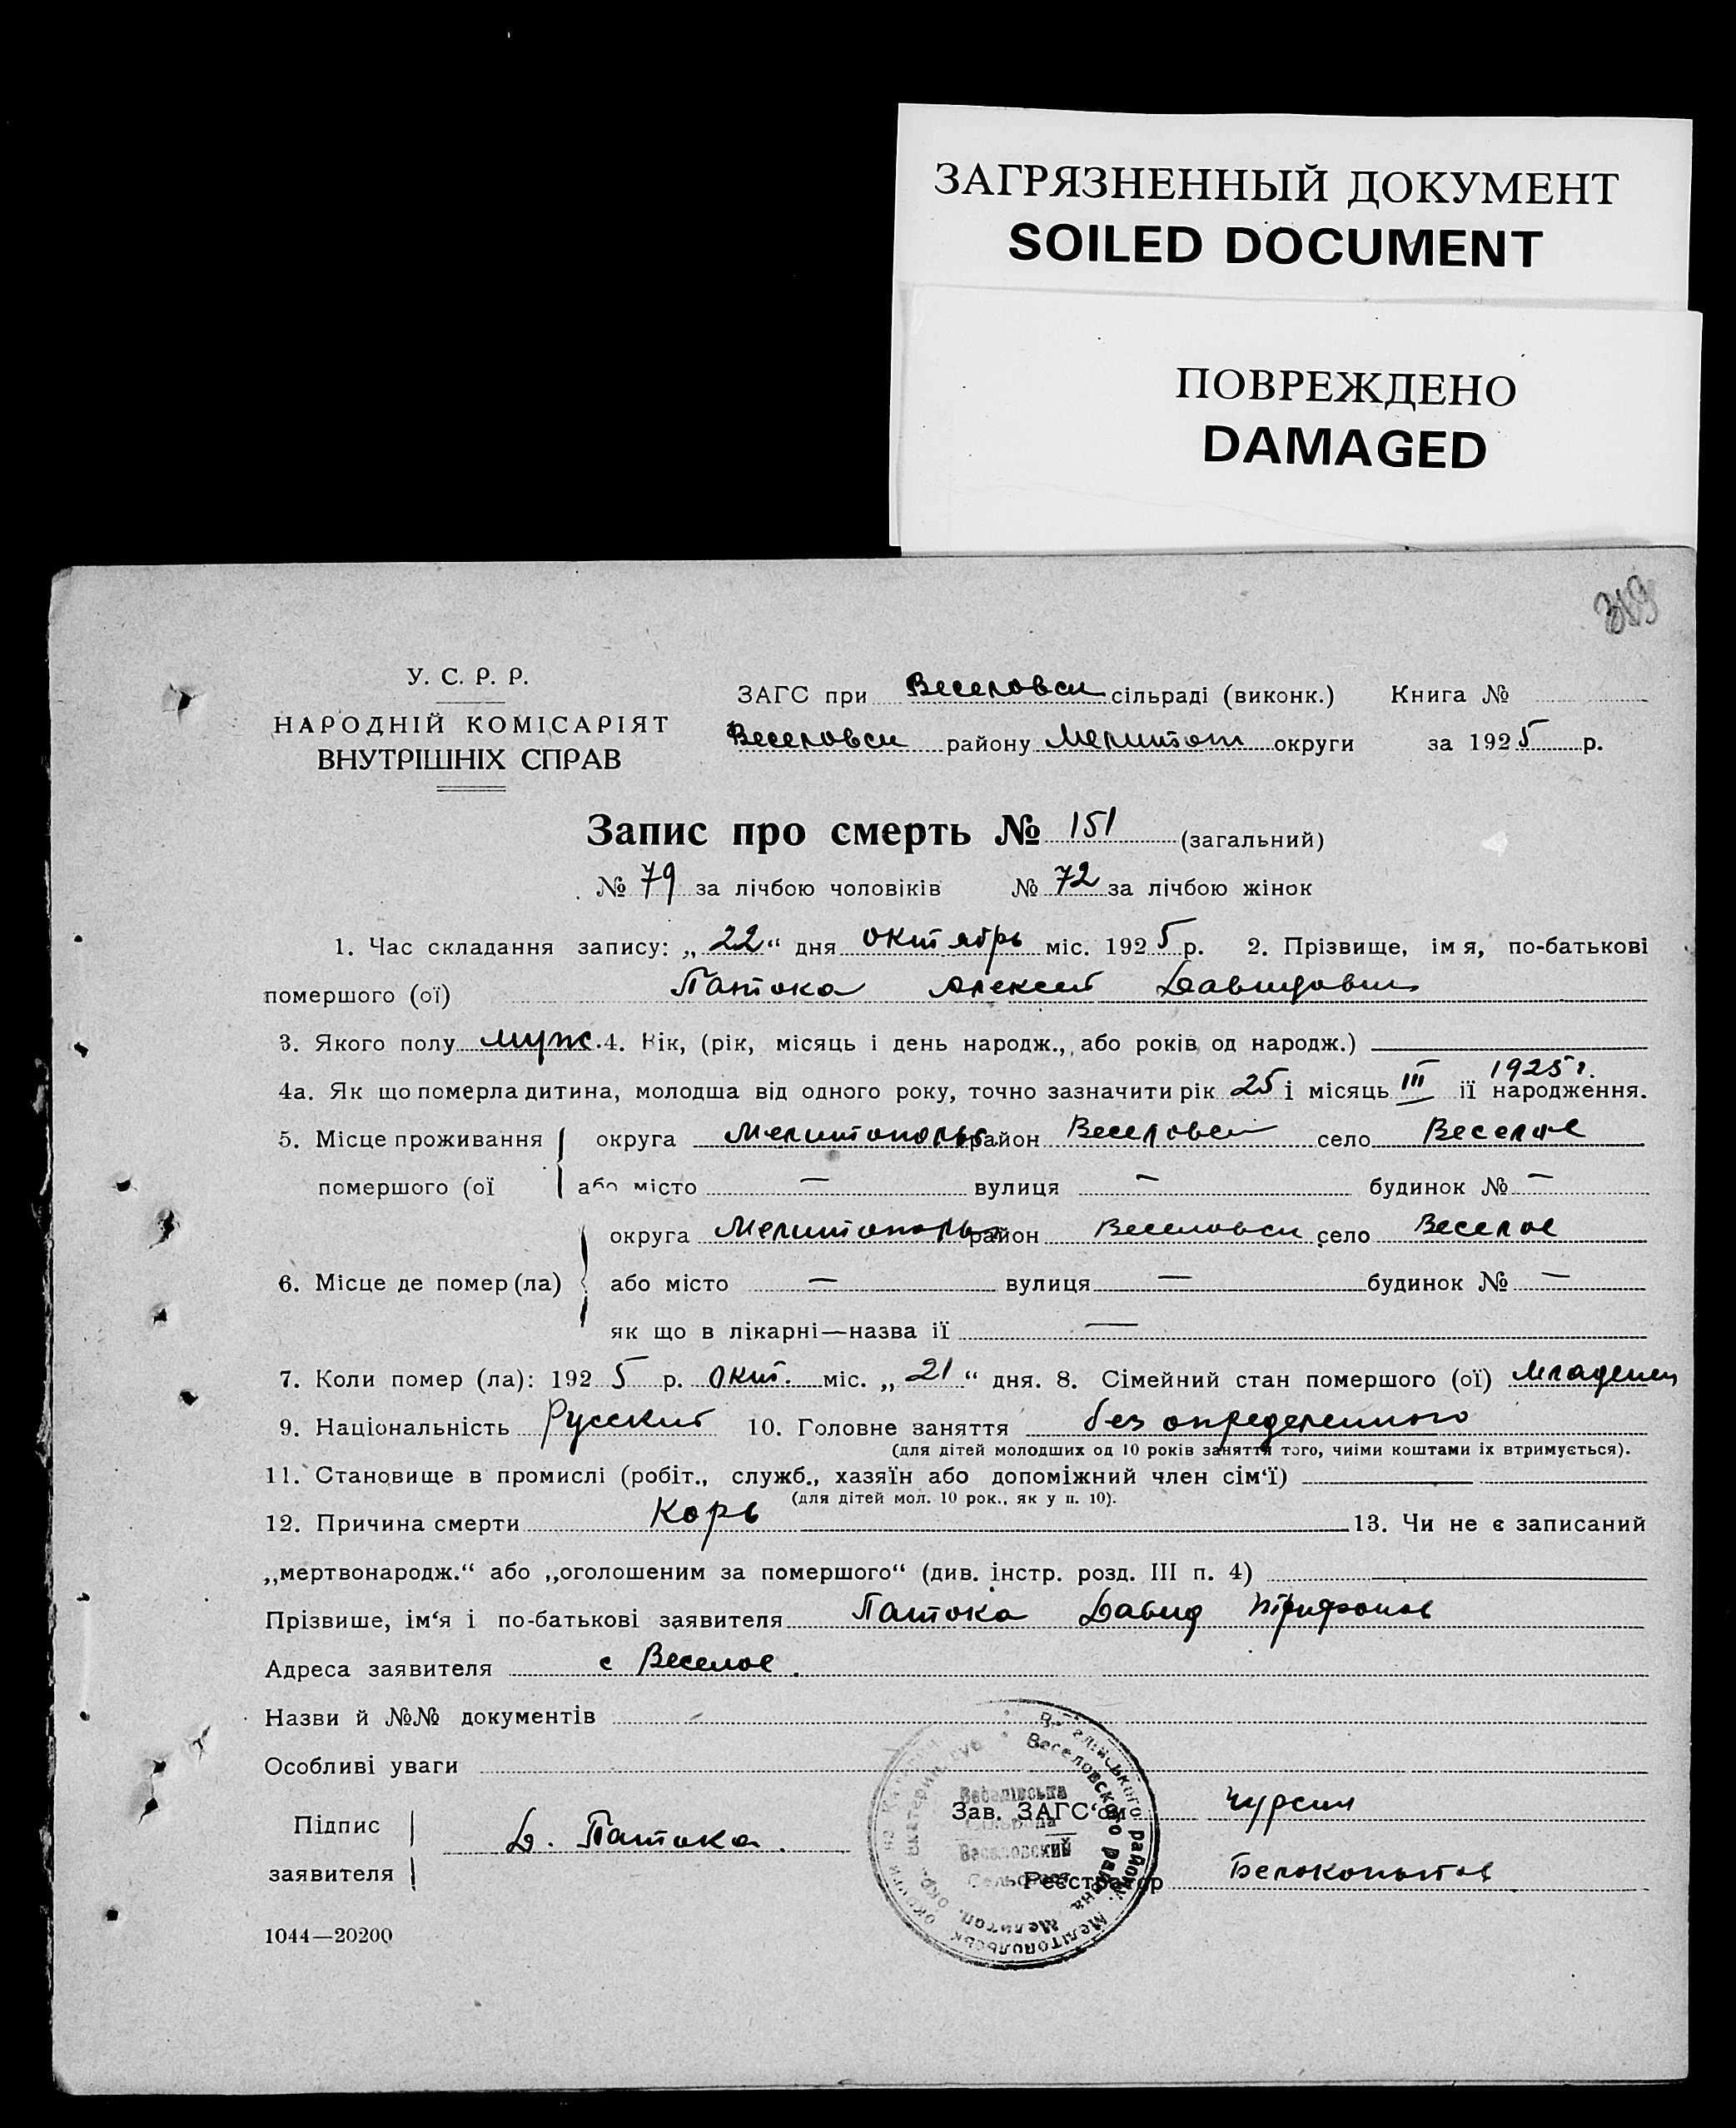 ЗАГРЯЗНЕННЫЙ ДОКУМЕНТ
SOILED DOCUMENT
ПОВРЕЖДЕНО
DAMAGED
У. С. Р. Р.
НАРОДНІЙ КОМІСАРІЯТ
ВНУТРІШНІХ СПРАВ
ЗАГС при Веселовси сільраді (виконк.) Книга №
Веселовси району Мелитоп округи за 1925 р.
Запис про смерть № 151 (загальний)
№ 79 за лічбою чоловіків № 72 за лічбою жінок
1. Час складання запису: „22“ дня октябрь міс. 1925 р. 2. Прізвище, імя, по-батькові
помершого (ої) Патока Алексей Давидович
3. Якого полу муж. 4. Вік, (рік, місяць і день народж., або років од народж.)
1925 г.
4а. Як що померла дитина, молодша від одного року, точно зазначити рік 25 і місяць III її народження.
5. Місце проживання округа Мелитополь район Веселовси село Веселое
помершого (ої або місто — вулиця — будинок № —
округа Мелитополь район Веселовси село Веселое
6. Місце де помер (ла) або місто — вулиця — будинок № —
як що в лікарні—назва її —
7. Коли помер (ла): 1925 р. окт. міс. „21“ дня. 8. Сімейний стан помершого (ої) младенец
9. Національність Русский 10. Головне заняття без определенного
(для дітей молодших од 10 років заняття того, чиїми коштами їх втримується).
11. Становище в промислі (робіт., служб., хазяїн або допоміжний член сім‘ї)
(для дітей мол. 10 рок., як у п. 10).
12. Причина смерти Корь 13. Чи не є записаний
„мертвонародж.“ або „оголошеним за помершого“ (див. інстр. розд. III п. 4)
Прізвише, ім‘я і по-батькові заявителя Патока Давид Трифонов
Адреса заявителя с Веселое.
Назви й №№ документів
Особливі уваги
Підпис заявителя Д. Патока.
Зав. ЗАГС‘ом Чурсин
Реєстратор Белокопытов
Веселовского района Мелитоп. окр. Екатерин. губ
району Мелітопольськ округи на Катеринос
Веселівська
Сільрада
Веселовский
Сельсовет
1044—20200